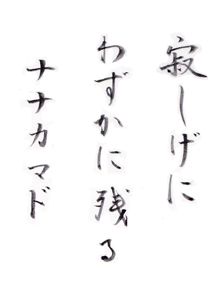 寂しげに
わずかに残る
ナナカマド